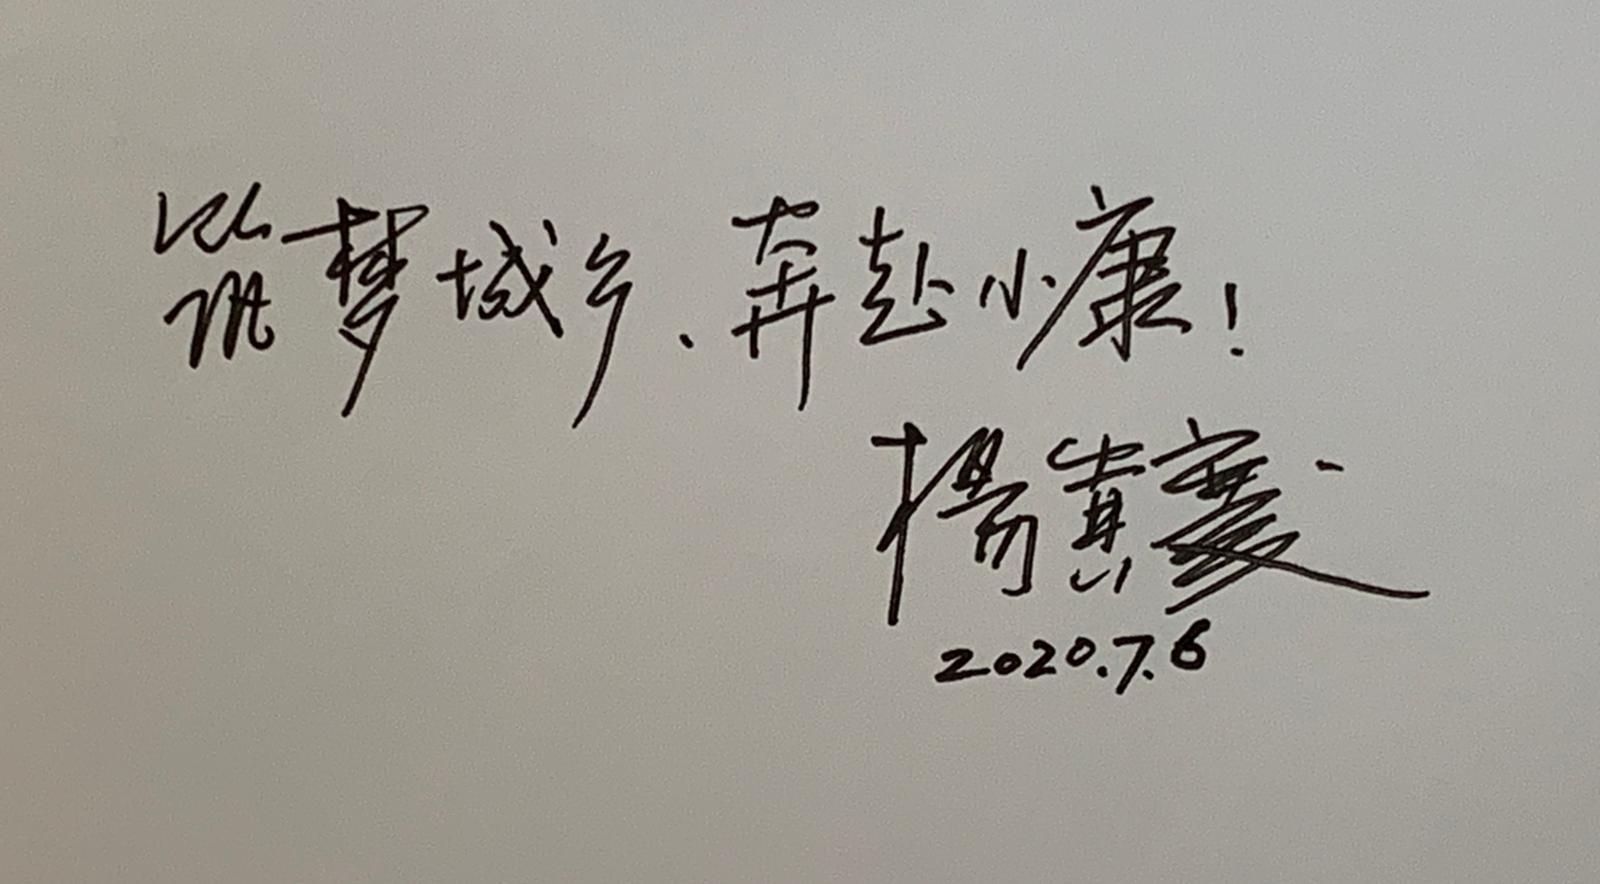 筑梦城乡、奔赴小康！
杨贵庆
2020.7.6